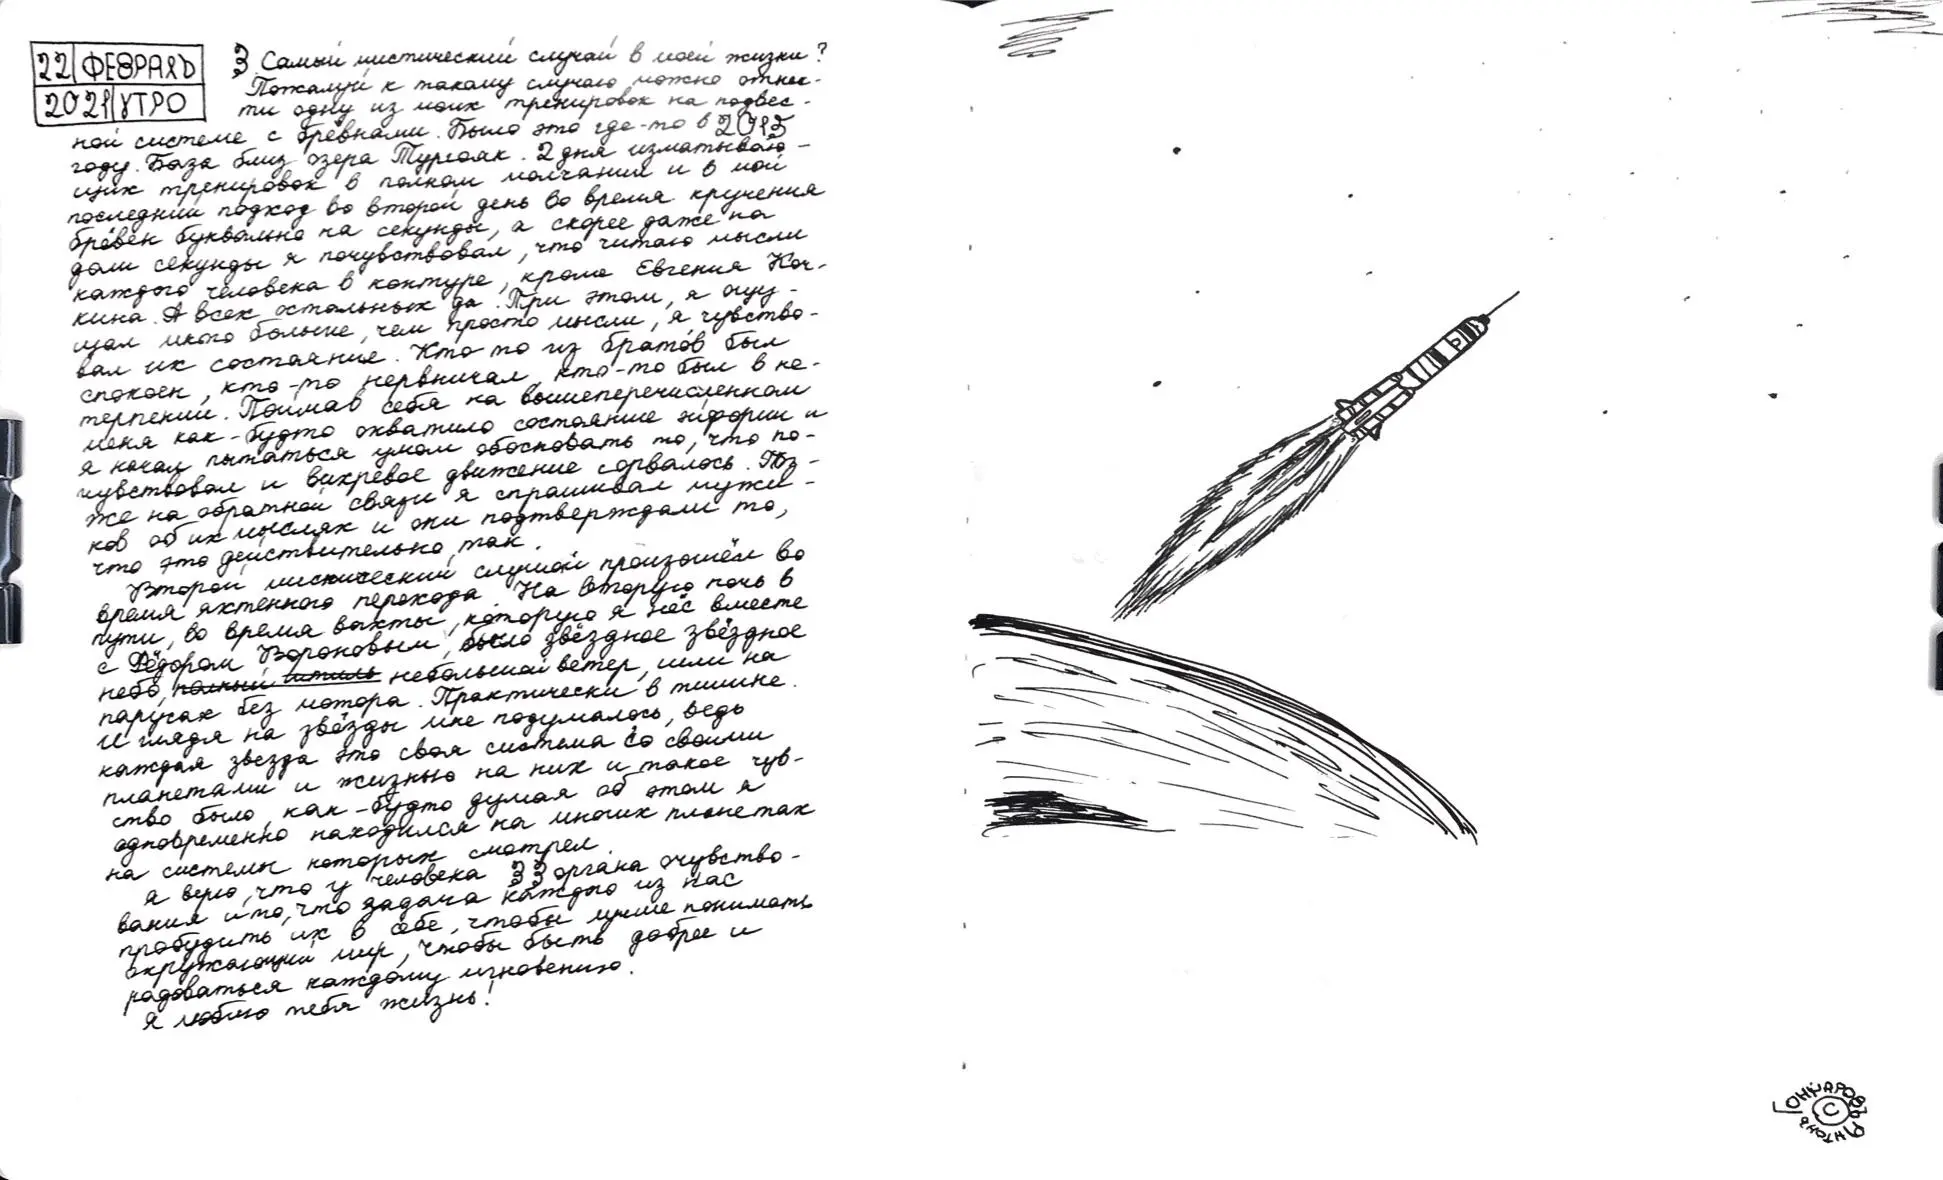 22 ФЕВРАЛЬ
2021 УТРО
3. Самый мистический случай в моей жизни?
Пожалуй к такому случаю можно отнес-
ти одну из моих тренировок на подвес-
ной системе с брёвнами. Было это где-то в 2015
году. База близ озера Тургояк. 2 дня изматываю-
щих тренировок в полном молчании и в мой
последний подход во второй день во время кручения
брёвен буквально на секунды, а скорее даже на
доли секунды я почувствовал, что читаю мысли
каждого человека в контуре, кроме Евгения Коч-
кина. А всех остальных да. При этом, я ощу-
щал много больше, чем просто мысли, я чувство-
вал их состояние. Кто то из братов был
спокоен, кто-то нервничал кто-то был в не-
терпении. Поймав себя на вышеперечисленном
меня как-будто охватило состояние эйфории и
я начал пытаться умом обосновать то, что по-
чувствовал и вихревое движение сорвалось. Поз-
же на обратной связи я спрашивал мужи-
ков об их мыслях и они подтверждали то,
что это действительно так.
Второй мистический случай произошёл во
время яхтенного перехода. На вторую ночь в
пути, во время вахты, которую я нёс вместе
с Фёдором Вороновым, было звёздное звёздное
небо, полный штиль небольшой ветер, шли на
парусах без мотора. Практически в тишине.
И глядя на звёзды мне подумалось, ведь
каждая звезда это своя система со своими
планетами и жизнью на них и такое чув-
ство было, как-будто думая об этом я
одновременно находился на многих планетах
на системы которых смотрел.
Я верю, что у человека 33 органа очувство-
вания и то, что задача каждого из нас
пробудить их в себе, чтобы лучше понимать
окружающий мир, чтобы быть добрее и
радоваться каждому мгновению.
Я люблю тебя жизнь!
Р
ГОНЧАРОВЪ АНТОНЪ
С